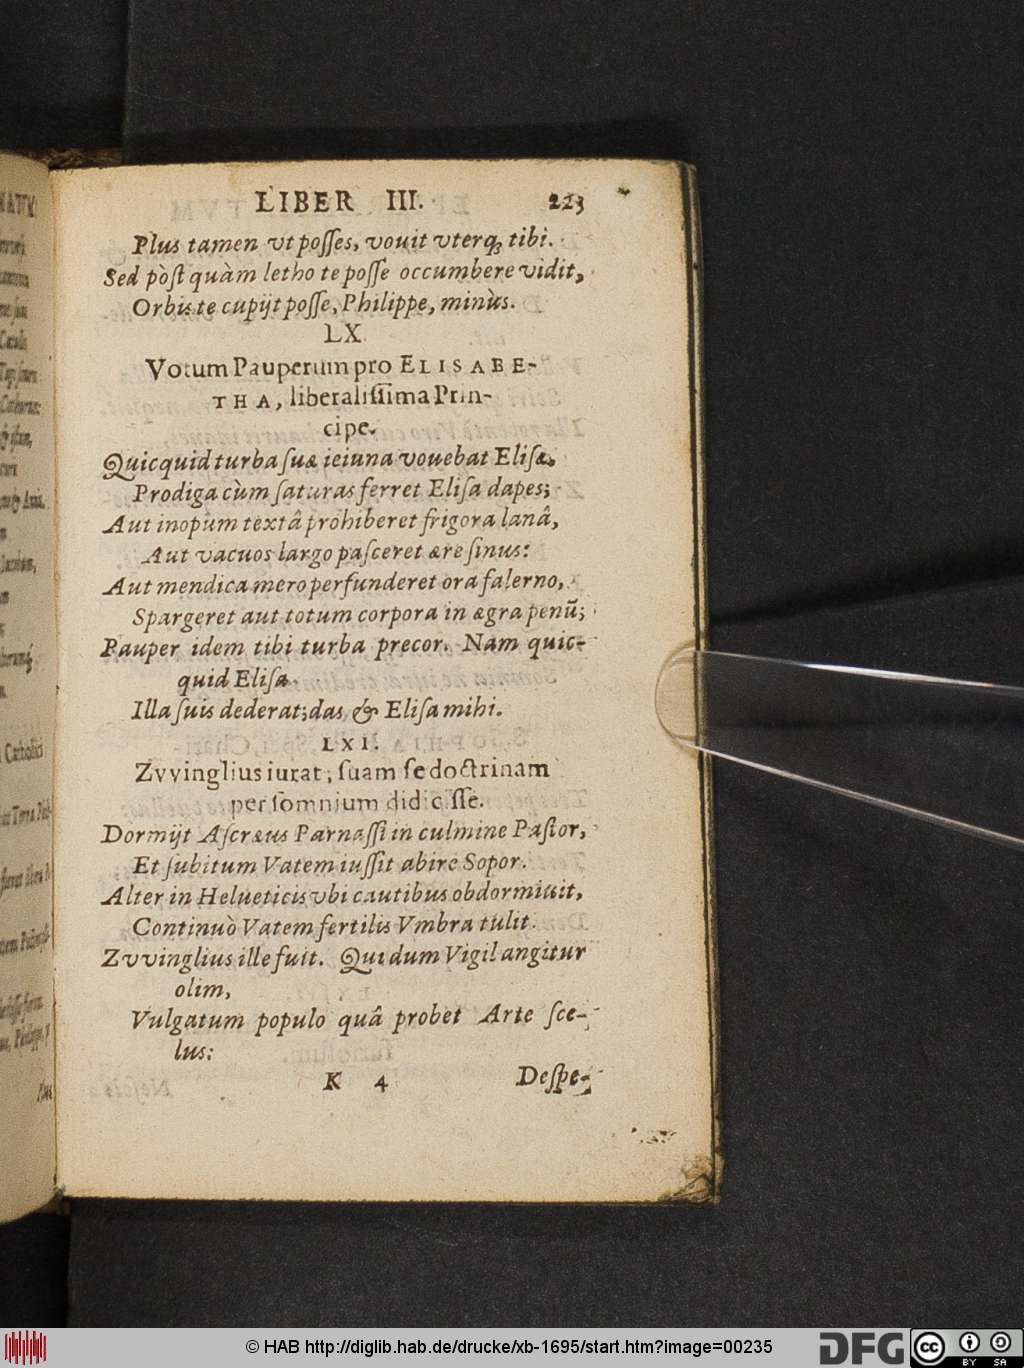 LIBER III. 223
Plus tamen vt posses, vouit vterq́₃ tibi.
Sed pòst quàm letho te posse occumbere vidit,
Orbis te cupijt posse, Philippe, minùs.
LX
Votum Pauperum pro ELISABE-
THA, liberalissima Prin-
cipe.
Quicquid turba suæ ieiuna vouebat Elisæ.
Prodiga cùm saturas ferret Elisa dapes;
Aut inopum textâ prohiberet frigora lanâ,
Aut vacuos largo pasceret ære sinus:
Aut mendica mero perfunderet ora falerno,
Spargeret aut totum corpora in ægra penũ;
Pauper idem tibi turba precor. Nam quic-
quid Elisa.
Illa suis dederat; das & Elisa mihi.
LXI.
Zvvinglius iurat, suam se doctrinam
per somnium didicisse.
Dormijt Ascræus Parnassi in culmine Pastor,
Et subitum Vatem iussit abire Sopor.
Alter in Helueticis vbi cautibus obdormiuit,
Continuò Vatem fertilis Vmbra tulit.
Zvvinglius ille fuit. Qui dum Vigil angitur
olim,
Vulgatum populo quâ probet Arte sce-
lus:
K 4 Despe-
© HAB http://diglib.hab.de/drucke/xb-1695/start.htm?image=00235
DFG
cc
BY SA